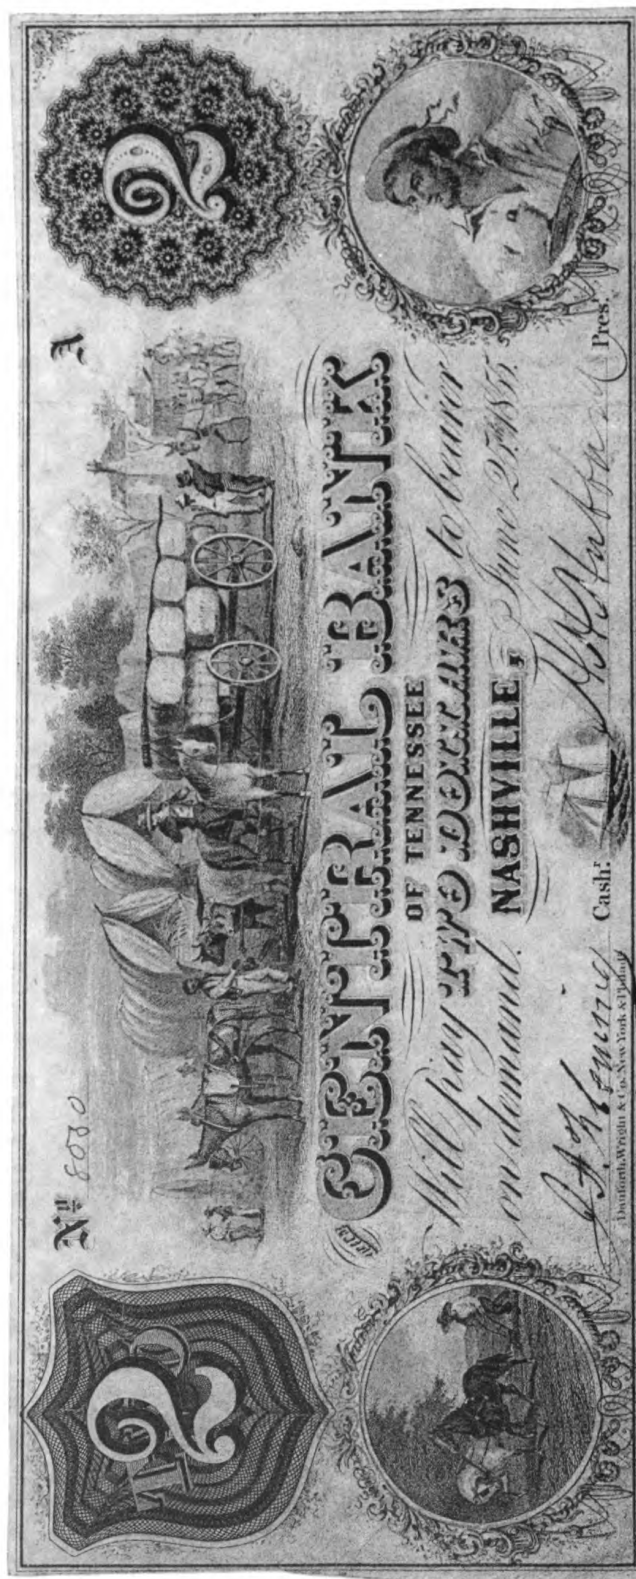 TWO
2
Nº 8080
A
2
THE
CENTRAL BANK
OF TENNESSEE
Will pay TWO DOLLARS to bearer
on demand. NASHVILLE, June 25th 1855.
Cashr.
Prest.
Danforth, Wright & Co. New York & Philada.